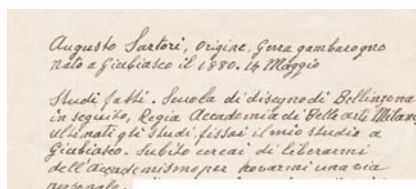 Augusto Sartori, origine, Gerra gambarogno
nato a Giubiasco il 1880. 14 Maggio
Studi fatti. Scuola di disegno di Bellinzona
in seguito, Regia Accademia di Belle arti Milano,
ultimati gli studi, fissai il mio studio a
Giubiasco. Subito cercai di liberarmi
dell'Accademismo per trovarmi una via
personale.